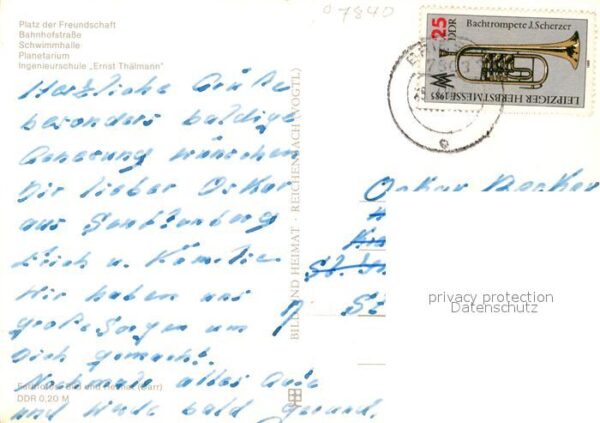 Platz der Freundschaft
Bahnhofstraße
Schwimmhalle
Planetarium
Ingenieurschule „Ernst Thälmann"
07840
25
DDR
Bachtrompete J. Scherzer
LEIPZIGER HERBSTMESSE 1985
MM
Herzliche Grüße
besonders baldige
Genesung wünschen
Dir lieber Oskar
aus Senftenberg
Erich u. Familie.
Wir haben uns
große Sorgen um
Dich gemacht.
Nochmals alles Gute
und werde bald gesund.
BILD UND HEIMAT · REICHENBACH (VOGTL)
Oskar Becker
St.
privacy protection
Datenschutz
Bild und Heimat
DDR 0,20 M